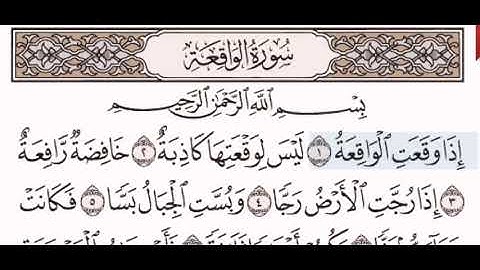 سُورَةُ الْوَاقِعَةِ
بِسْمِ اللَّهِ الرَّحْمَٰنِ الرَّحِيمِ
إِذَا وَقَعَتِ الْوَاقِعَةُ ١ لَيْسَ لِوَقْعَتِهَا كَاذِبَةٌ ٢ خَافِضَةٌ رَّافِعَةٌ
٣ إِذَا رُجَّتِ الْأَرْضُ رَجًّا ٤ وَبُسَّتِ الْجِبَالُ بَسًّا ٥ فَكَانَتْ